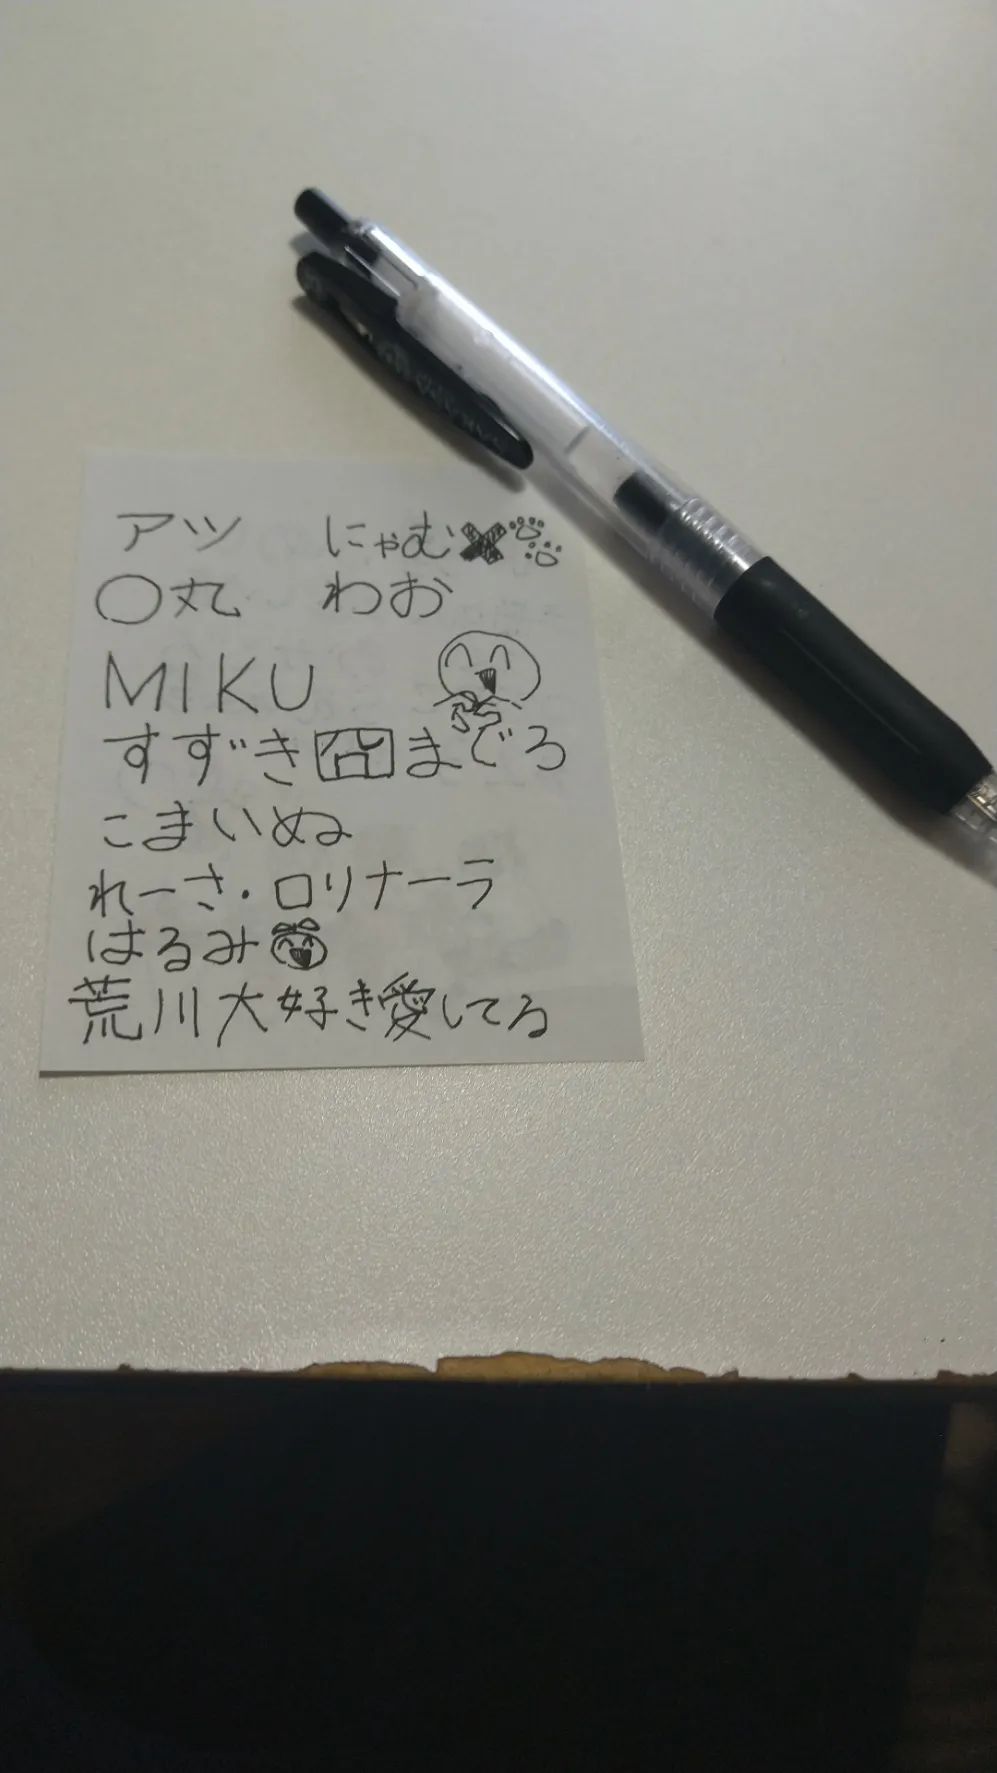 アツ にゃむ✖🐾
〇丸 わお
MIKU
すずき囧まどろ
こまいぬ
れーさ・ロリナーラ
はるみ
荒川大好き愛してる